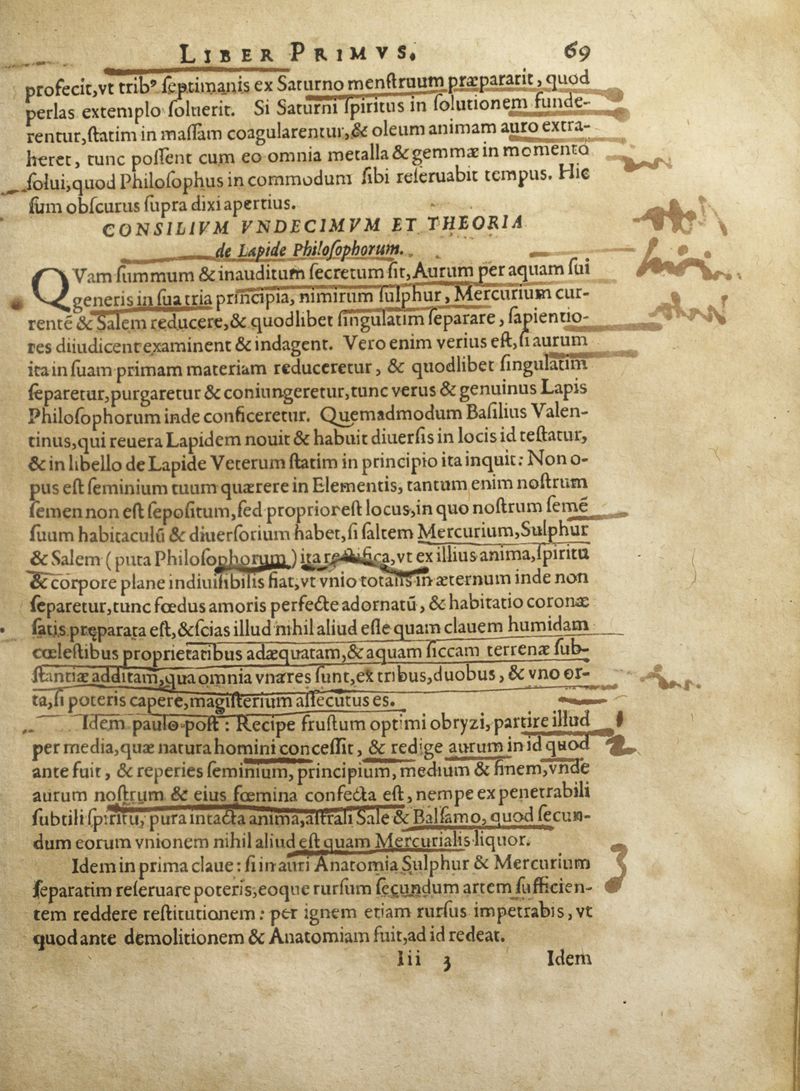 LIBER PRIMVS. 69
profecit,vt tribꝰ ſeptimanis ex Saturno menſtruum præpararit, quod
perlas extemplo ſoluerit. Si Saturni ſpiritus in ſolutionem funde-
rentur,ſtatim in maſſam coagularentur,& oleum animam auro extra-
heret, tunc poſſent cum eo omnia metalla & gemmæ in momento
ſolui,quod Philoſophus in commodum ſibi reſeruabit tempus. Hic
ſum obſcurus ſupra dixi apertius.
CONSILIVM VNDECIMVM ET THEORIA
de Lapide Philoſophorum.
QVam ſummum & inauditum ſecretum ſit, Aurum per aquam ſui
generis in ſua tria principia, nimirum ſulphur, Mercurium cur-
rentẽ & Salem reducere,& quodlibet ſingulatim ſeparare, ſapientio-
res diiudicent examinent & indagent. Vero enim verius eſt, ſi aurum
ita in ſuam primam materiam reduceretur, & quodlibet ſingulatim
ſeparetur,purgaretur & coniungeretur,tunc verus & genuinus Lapis
Philoſophorum inde conficeretur. Quemadmodum Baſilius Valen-
tinus,qui reuera Lapidem nouit & habuit diuerſis in locis id teſtatur,
& in libello de Lapide Veterum ſtatim in principio ita inquit: Non o-
pus eſt ſeminium tuum quærere in Elementis, tantum enim noſtrum
ſemen non eſt ſepoſitum,ſed proprior eſt locus,in quo noſtrum ſemẽ
ſuum habitaculũ & diuerſorium habet,ſi ſaltem Mercurium,Sulphur
& Salem (puta Philoſophorum) ita rectifica,vt ex illius anima,ſpiritu
& corpore plane indiuiſibilis fiat,vt vnio totalis in æternum inde non
ſeparetur,tunc fœdus amoris perfecte adornatũ, & habitatio coronæ
ſatis pręparata eſt,& ſcias illud nihil aliud eſſe quam clauem humidam
cœleſtibus proprietatibus adæquatam,& aquam ſiccam terrenæ ſub-
ſtantiæ additam,qua omnia vna res ſunt,ex tribus,duobus, & vno or-
ta,ſi poteris capere,magiſterium aſſecutus es.
Idem paulo poſt: Recipe fruſtum optimi obryzi, partire illud
per media,quæ natura homini conceſſit, & redige aurum in id quod
ante fuit, & reperies ſeminium, principium, medium & finem,vnde
aurum noſtrum & eius fœmina confecta eſt, nempe ex penetrabili
ſubtili ſpiritu, pura intacta anima,aſtrali Sale & Balſamo, quod ſecun-
dum eorum vnionem nihil aliud eſt quam Mercurialis liquor.
Idem in prima claue: ſi in auri Anatomia Sulphur & Mercurium
ſeparatim reſeruare poteris,eoque rurſum ſecundum artem ſufficien-
tem reddere reſtitutionem: per ignem etiam rurſus impetrabis, vt
quod ante demolitionem & Anatomiam fuit,ad id redeat.
Iii 3 Idem